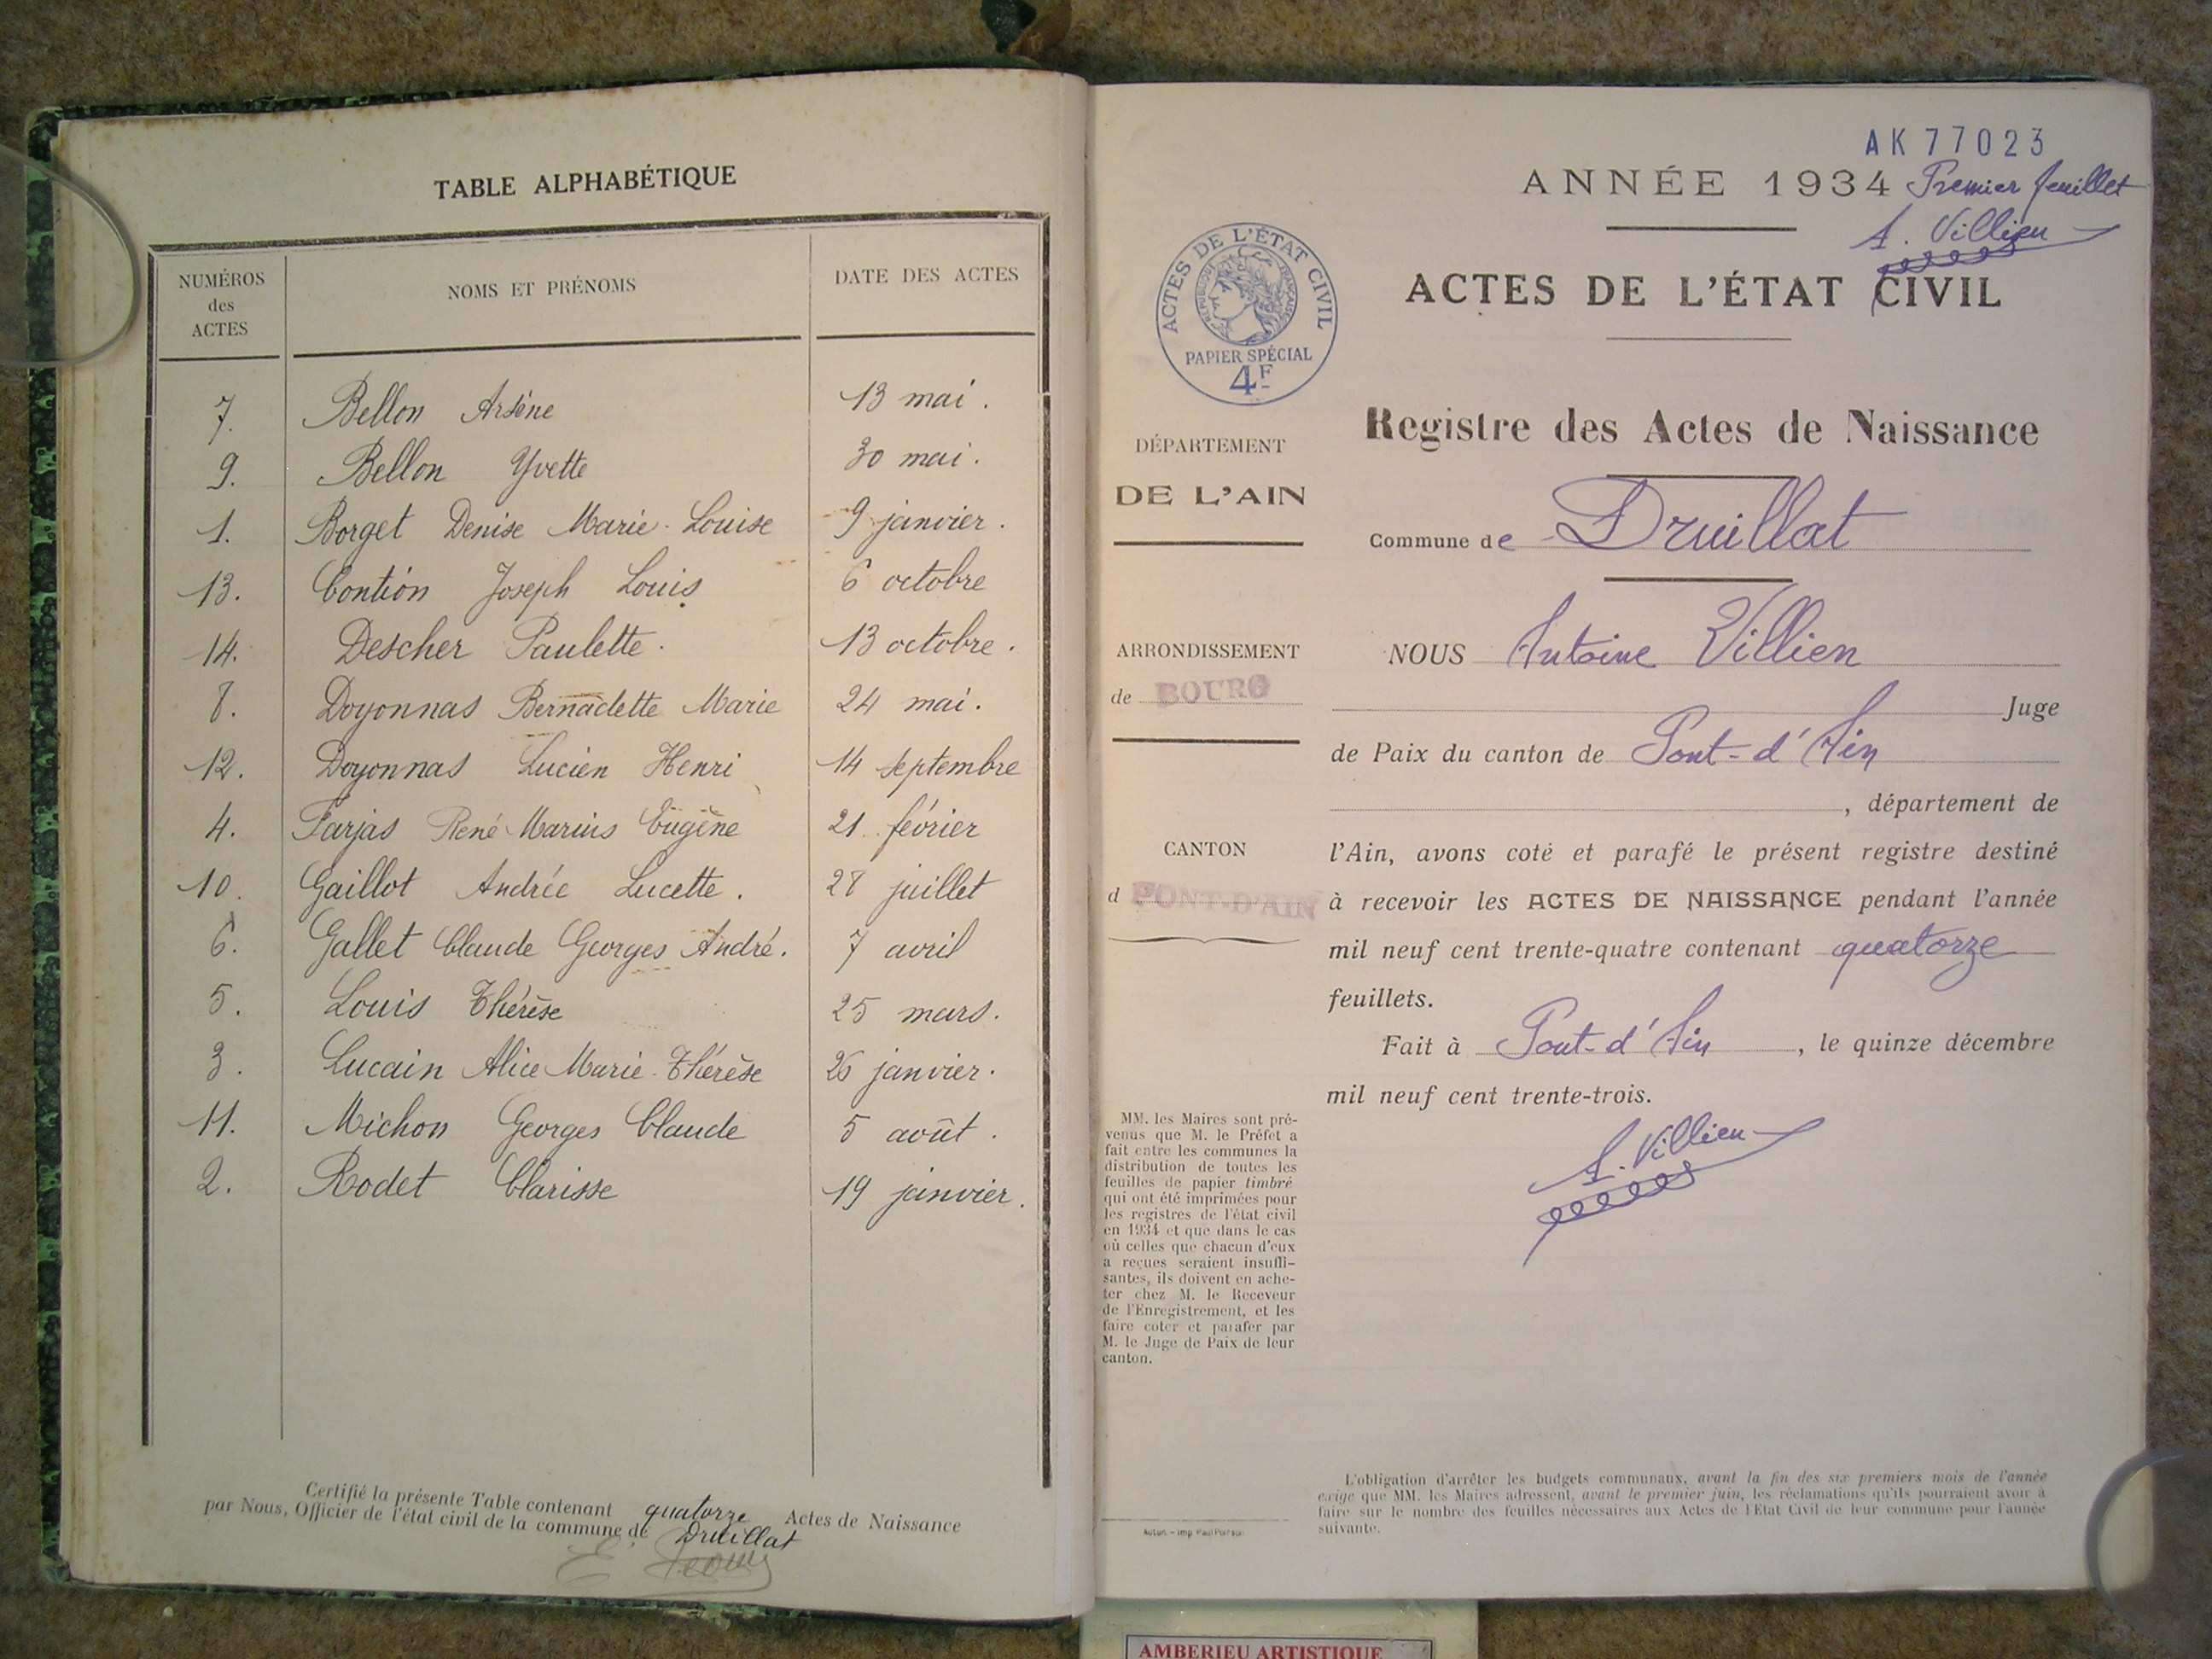 TABLE ALPHABÉTIQUE
NUMÉROS des ACTES NOMS ET PRÉNOMS DATE DES ACTES
7. Bellon Arsène 13 mai.
9. Bellon Yvette 30 mai.
1. Borget Denise Marie-Louise 9 janvier.
13. Contion Joseph Louis 6 octobre
14. Descher Paulette. 13 octobre.
8. Doyonnas Bernadette Marie 24 mai.
12. Doyonnas Lucien Henri 14 septembre
4. Farjas René Marius Eugène 21 février
10. Gaillot Andrée Lucette. 28 juillet
6. Gallet Claude Georges André. 7 avril
5. Louis Thérèse 25 mars.
3. Lucain Alice Marie-Thérèse 26 janvier.
11. Michon Georges Claude 5 août.
2. Rodet Clarisse 19 janvier.
Certifié la présente Table contenant quatorze Actes de Naissance
par Nous, Officier de l'état civil de la commune de Druillat
AK 77023
ANNÉE 1934 Premier feuillet
A. Villien
ACTES DE L'ÉTAT CIVIL
ACTES DE L'ÉTAT CIVIL
RÉPUBLIQUE FRANÇAISE
PAPIER SPÉCIAL
4F
DÉPARTEMENT
DE L'AIN
ARRONDISSEMENT
de BOURG
CANTON
d PONT-D'AIN
MM. les Maires sont pré-
venus que M. le Préfet a
fait entre les communes la
distribution de toutes les
feuilles de papier timbré
qui ont été imprimées pour
les registres de l'état civil
en 1934 et que dans le cas
où celles que chacun d'eux
a reçues seraient insuffi-
santes, ils doivent en ache-
ter chez M. le Receveur
de l'Enregistrement, et les
faire coter et parafer par
M. le Juge de Paix de leur
canton.
Registre des Actes de Naissance
Commune de Druillat
NOUS Antoine Villien
Juge
de Paix du canton de Pont-d'Ain
, département de
l'Ain, avons coté et parafé le présent registre destiné
à recevoir les ACTES DE NAISSANCE pendant l'année
mil neuf cent trente-quatre contenant quatorze
feuillets.
Fait à Pont-d'Ain, le quinze décembre
mil neuf cent trente-trois.
A. Villien
L'obligation d'arrêter les budgets communaux, avant la fin des six premiers mois de l'année
exige que MM. les Maires adressent, avant le premier juin, les réclamations qu'ils pourraient avoir à
faire sur le nombre des feuilles nécessaires aux Actes de l'Etat Civil de leur commune pour l'année
suivante.
AMBERIEU ARTISTIQUE